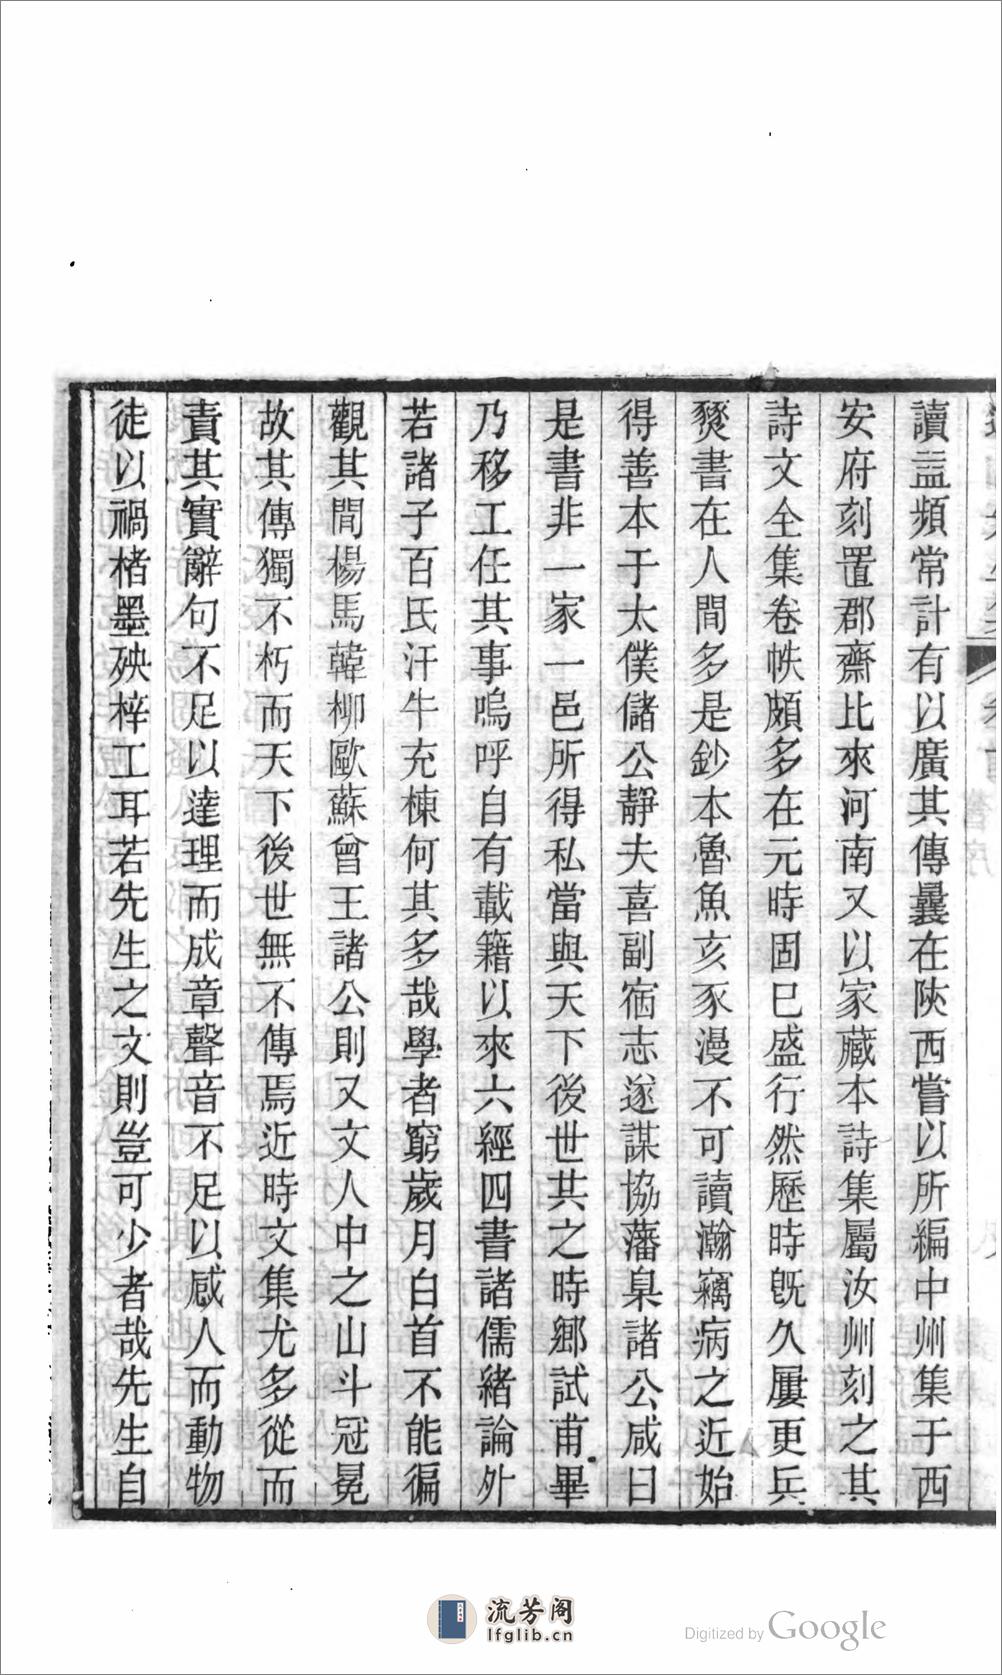 讀益頻常計有以廣其傳曩在陝西嘗以所編中州集于西
安府刻置郡齋比來河南又以家藏本詩集屬汝州刻之其
詩文全集卷帙頗多在元時固已盛行然歷時旣久屢更兵
燹書在人間多是鈔本魯魚亥豕漫不可讀瀚竊病之近始
得善本于太僕儲公靜夫喜副宿志遂謀協藩臬諸公咸曰
是書非一家一邑所得私當與天下後世共之時鄉試甫畢
乃移工任其事嗚呼自有載籍以來六經四書諸儒緒論外
若諸子百氏汗牛充棟何其多哉學者窮歲月白首不能徧
觀其間楊馬韓柳歐蘇曾王諸公則又文人中之山斗冠冕
故其傳獨不朽而天下後世無不傳焉近時文集尤多從而
責其實辭句不足以達理而成章聲音不足以感人而動物
徒以禍楮墨殃梓工耳若先生之文則豈可少者哉先生自
流芳阁
lfglib.cn
Digitized by Google